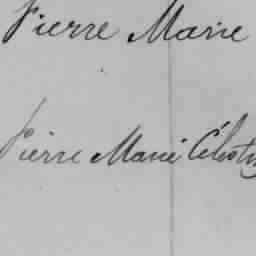 Pierre Marie
Pierre Marie Célesti